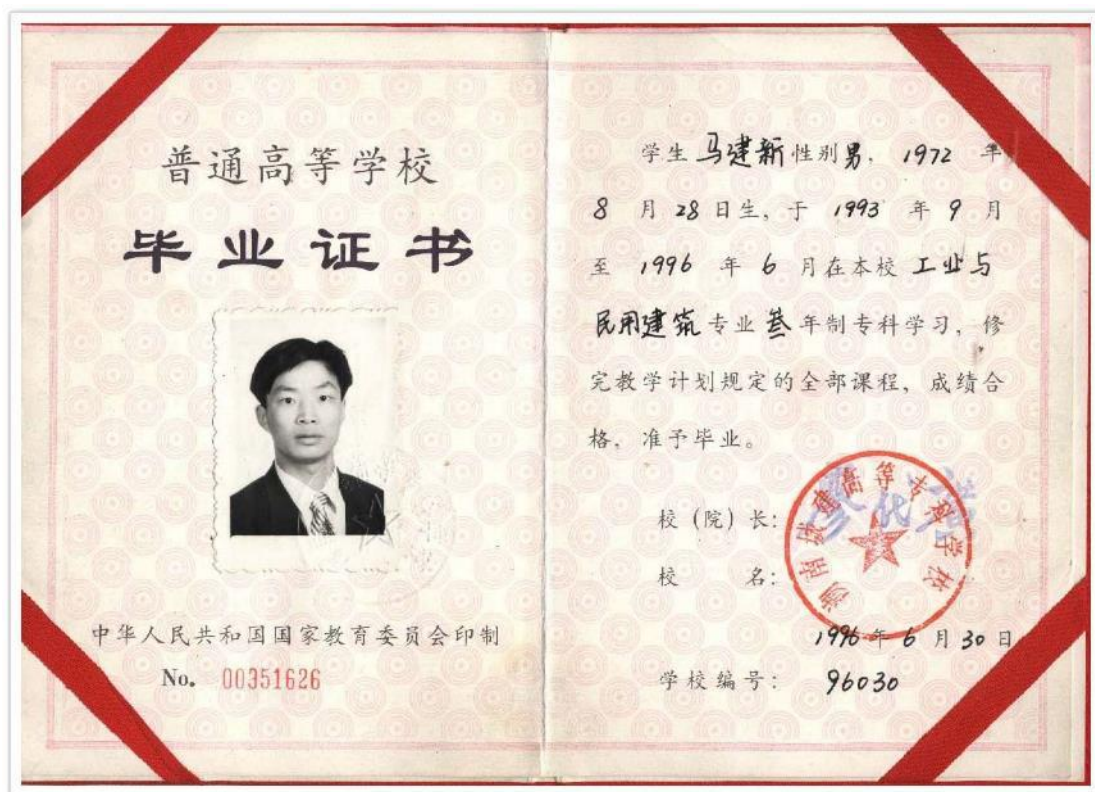 普通高等学校
毕业证书
中华人民共和国国家教育委员会印制
No. 00351626
学生马建新性别男，1972年
8月28日生，于1993年9月
至1996年6月在本校工业与
民用建筑专业叁年制专科学习，修
完教学计划规定的全部课程，成绩合
格，准予毕业。
校（院）长：
校名：
湖南城建高等专科学校
1996年6月30日
学校编号：96030